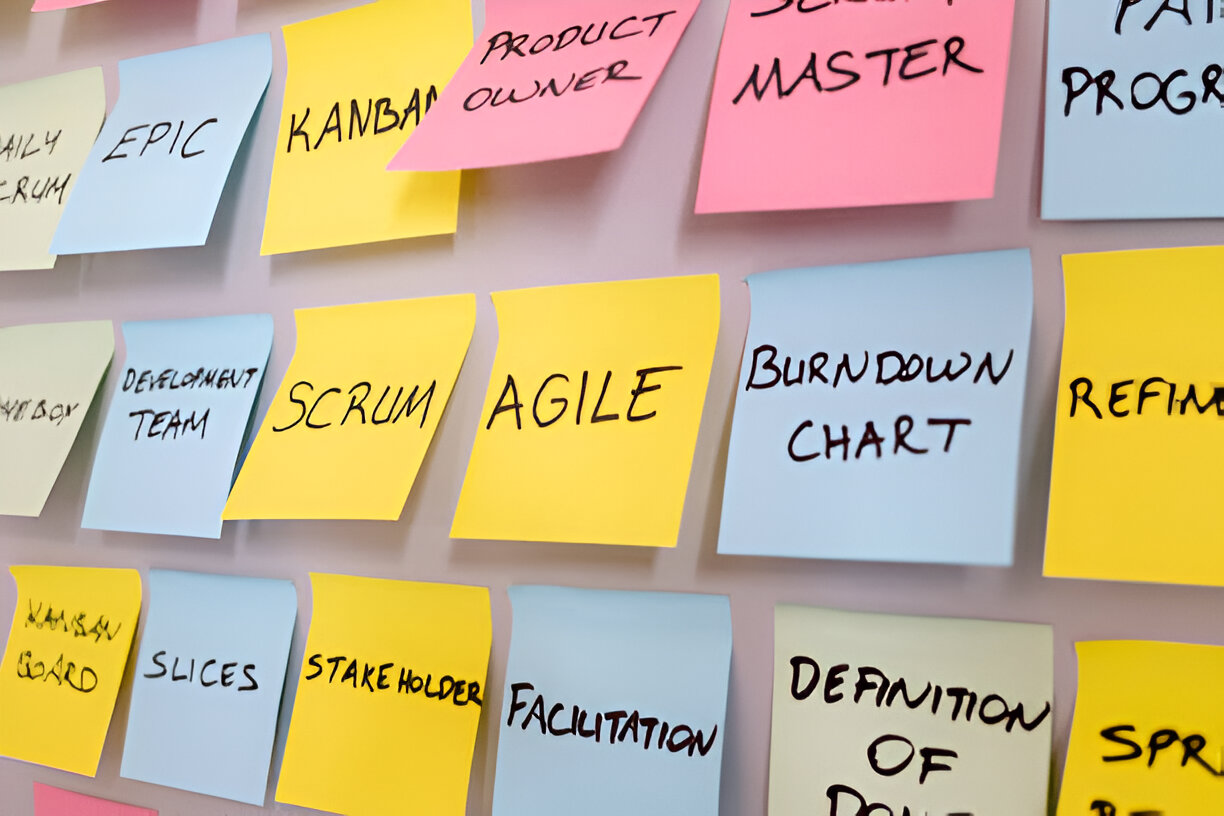 EPIC
KANBAN
PRODUCT
OWNER
MASTER
PROGR
DEVELOPMENT
TEAM
SCRUM
AGILE
BURNDOWN
CHART
REFINE
KANBAN
BOARD
SLICES
STAKEHOLDER
FACILITATION
DEFINITION
OF
DONE
SPR